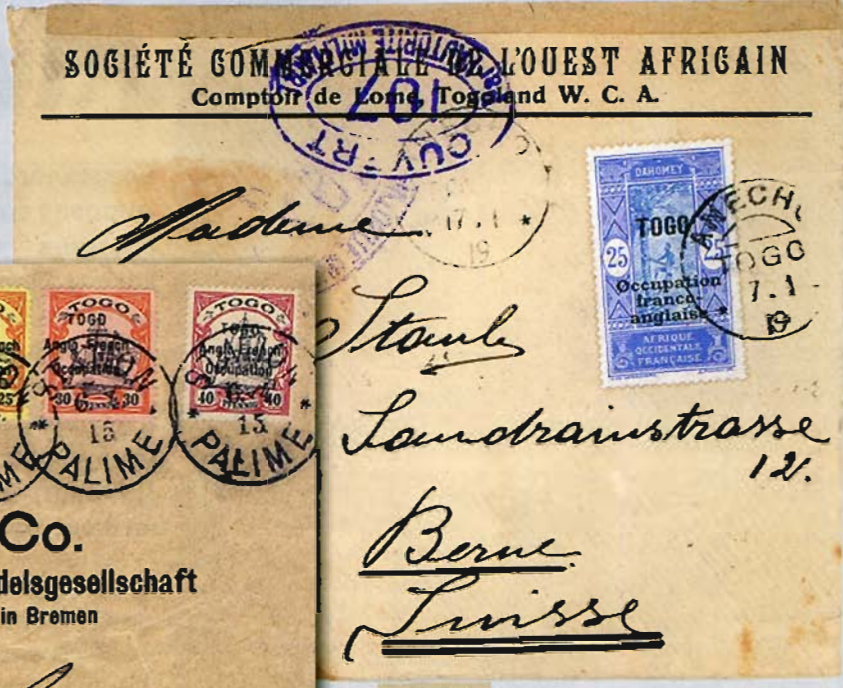 SOCIÉTÉ COMMERCIALE DE L'OUEST AFRICAIN
Comptoir de Lome, Togoland W. C. A.
L'AUTORITÉ MILITAIRE
107
OUVERT
17.1
19
DAHOMEY
TOGO
25 25
Occupation
franco-
anglaise
AFRIQUE
OCCIDENTALE
FRANÇAISE
ANECHO
TOGO
17.1
19
Madame
Staub
12.
Berne
Suisse
25
TOGO
TOGO
Anglo-French
Occupation
30 PFENNIG 30
TOGO
TOGO
Anglo-French
Occupation
40 PFENNIG 40
PALIME
PALIME
Co.
delsgesellschaft
in Bremen